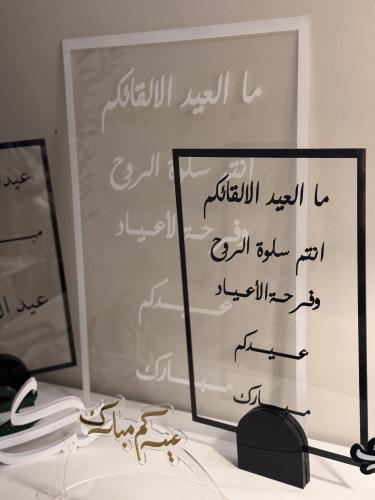 ما العيد الالقائكم
انتم سلوة الروح
وفرحة الأعياد
عيدكم
مبارك
ما العيد الالقائكم
انتم سلوة الروح
وفرحة الأعياد
عيدكم
مبارك
عيدكم مبارك